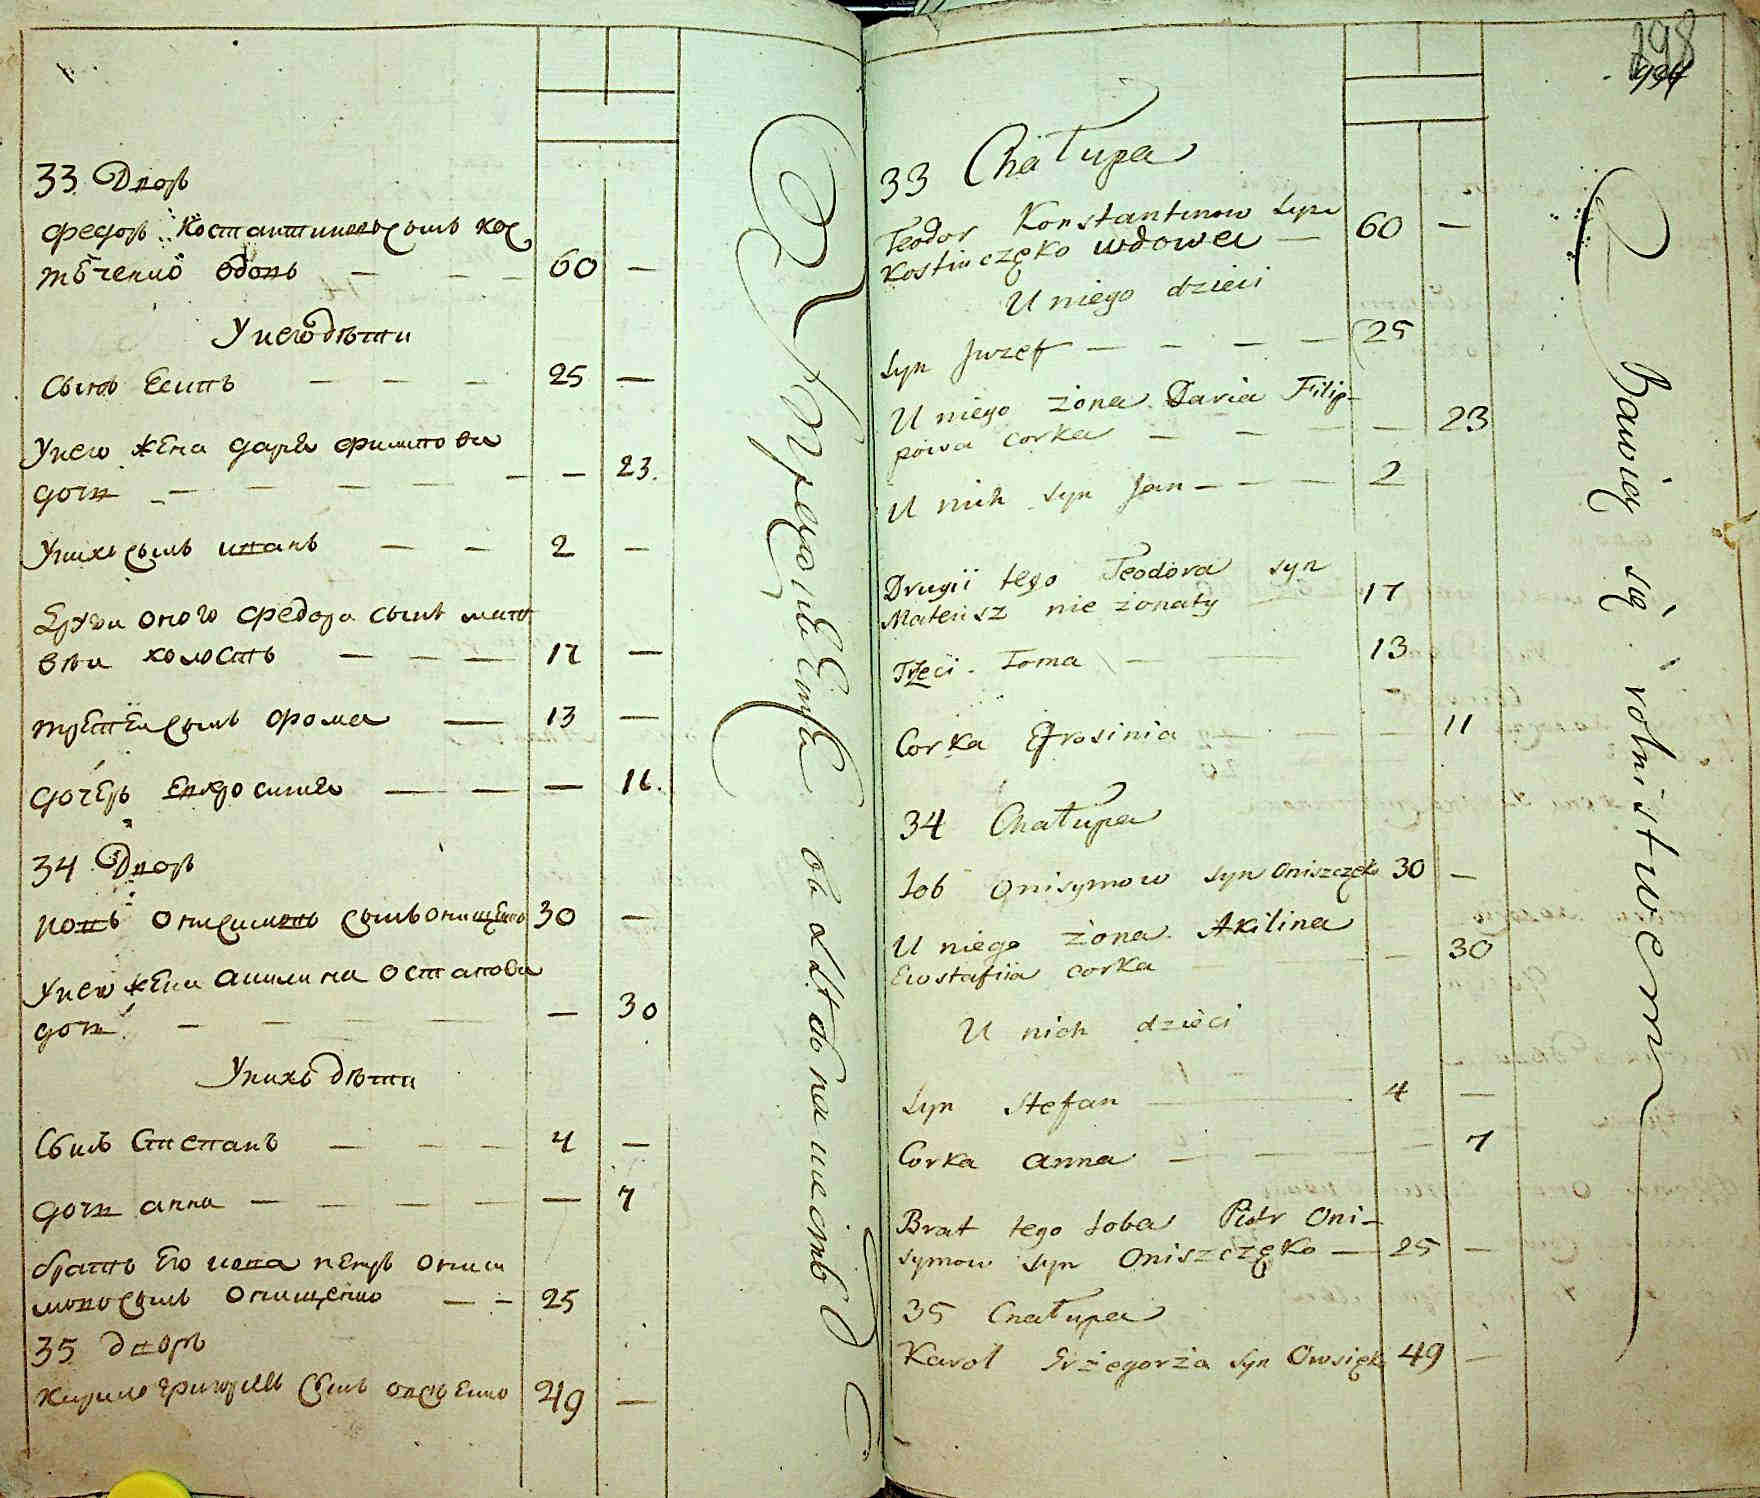 33 Дворъ
Федоръ Костантиновъ сынъ Кос
тюченко вдовъ — — — 60 —
У него дѣти
Сынъ Есипъ — — — 25 —
У него жена Дарья Филипова
дочь — — — — — — 23.
У нихъ сынъ Иванъ — — 2 —
Други оного Федора сынъ мат
вѣи холостъ — — — 17 —
Третеи сынъ Фома — 13 —
Дочерь Евфросинья — — — 11.
34 Дворъ
Иовъ Онисимовъ сынъ Онищенко 30 —
У него жена Акилина Остапова
дочь — — — — — 30
У нихъ дѣти
Сынъ Степанъ — — — 4 —
Дочь Анна — — — — — — 7
Братъ его Иова Петръ Ониси
мовъ сынъ Онищенко — — 25
35 Дворъ
Кирило Григорьевъ сынъ Овсѣенко 49 —
798
33 Chałupa
Teodor Konstantinow Syn
Kostiuczęko wdowei — 60 —
U niego dzieci
Syn Juzef — — — — 25
U niego żona Daria Filip-
powa corka — — — — 23
U nich syn Jan — — — 2
Drugii tego Teodora syn
Mateusz nie żonaty — 17
Trzeci Toma — — 13
Corka Efrosinia — — — — 11
34 Chałupa
Iob Onisymow syn Oniszczęko 30 —
U niego żona Akilina
Ewstafiia corka — — — 30
U nich dzieci
Syn Stefan — 4 —
Corka Anna — — — — 7
Brat tego Ioba Piotr Oni-
symow syn Oniszczęko — 25 —
35 Chałupa
Karol Grzegorza syn 49 —
Bawiący się rolnistwem